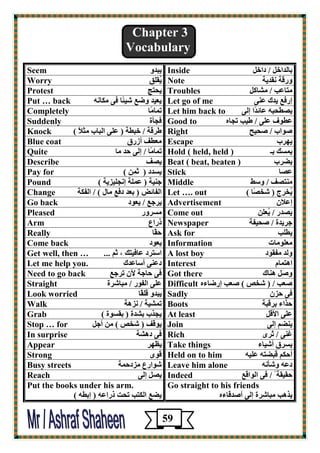 Chapter 3
Vocabulary
Seem يبدو Inside بالداخل / داخل
Worry يقلق Note ورقة نقدية
Protest يحتج Troubles متاعب / مشاكل
Put … back يعيد وضع شيئا فى مكانه Let go of me إرفع يدك عني
Completely تماما Let him back to يصطحبه عائدا إلى
Suddenly فجأة Good to عطوف على / طيب تجاه
Knock طرقة / خبطة ( على الباب مثلا ) Right صواب / صحيح
Blue coat معطف أزرق Escape يهرب
Quite تماما / إلى حد ما Hold ( held, held ) يمسك بـ
Describe يصف Beat ( beat, beaten ) يضرب
Pay for يسدد ( ثمن ) Stick عصا
Pound جنية ( عملة إنجليزية ) Middle منتصف / وسط
Change الفائض ( بعد دفع مال ) / الفكة Let …. out يخرج ( شخصا )
Go back يرجع / يعود Advertisement إعلان
Pleased مسرور Come out يصدر / يعلن
Arm ذراع Newspaper جريدة / صحيفة
Really حقا Ask for يطلب
Come back يعود Information معلومات
Get well, then … استرد عافيتك ، ثم ... A lost boy ولد مفقود
Let me help you. دعنى أساعدك Interest اهتمام
Need to go back فى حاجة لأن ترجع Got there وصل هناك
Straight على الفور / مباشرة Difficult صعب / ( شخص ) صعب إرضاءه
Look worried يبدو قلقا Sadly فى حزن
Walk تمشية / نزهة Boots حذاء برقبة
Grab يجذب بشدة ( بقسوة ) At least على الأقل
Stop … for يوقف ( شخص ) من أجل Join ينضم إلى
In surprise فى دهشة Rich غنى / ثرى
Appear يظهر Take things يسرق أشياء
Strong قوى Held on to him أحكم قبضته عليه
Busy streets شوارع مزدحمة Leave him alone دعه وشأنه
Reach يصل إلى Indeed حقيقة / فى الواقع
Put the books under his arm. Go straight to his friends
يضع الكتب تحت ذراعه ( إبطه ) يذهب مباشرة إلى أصدقاءه
Mr / Ashraf Shaheen
59